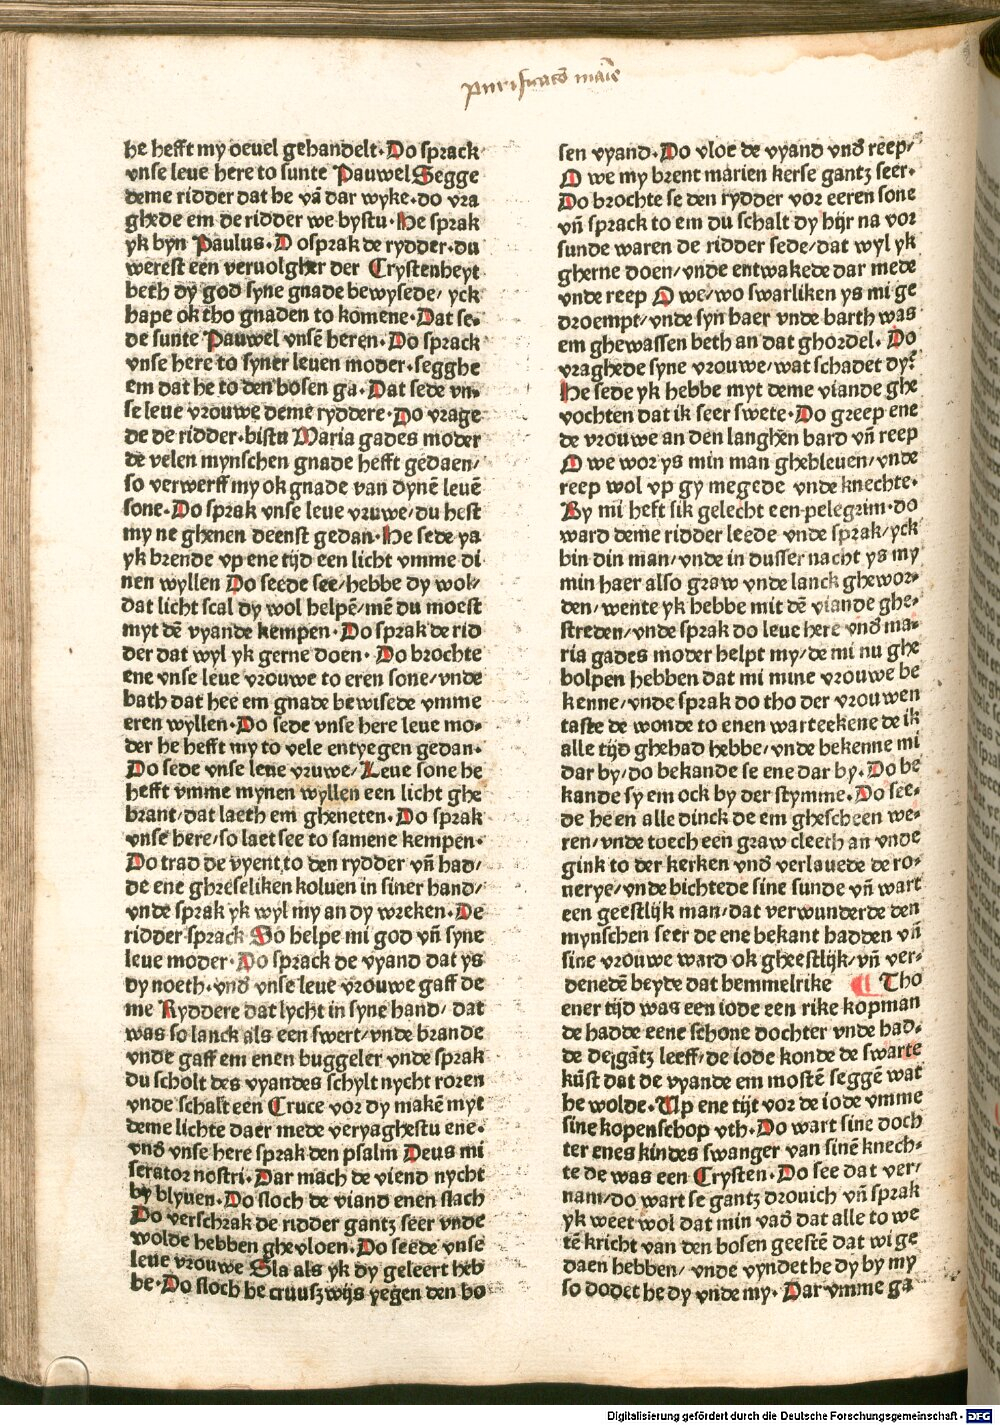 purificatō marie
he hefft my oeuel gehandelt. Do sprack
vnse leue here to sunte Pauwel Segge
deme ridder dat he vā dar wyke. do vra
ghede em de ridder we bystu. He sprak
yk byn Paulus. Do sprak de rydder. du
werest een veruolgher der Crystenheyt
beth dy god syne gnade bewysede/ yck
hape ok tho gnaden to komene. Dat se-
de sunte Pauwel vnsē heren. Do sprack
vnse here to syner leuen moder. segghe
em dat he to den bosen ga. Dat sede vn-
se leue vrouwe deme ryddere. Do vrage
de de ridder. bistu Maria gades moder
de velen mynschen gnade hefft gedaen/
so verwerff my ok gnade van dynē leuē
sone. Do sprak vnse leue vruwe/ du hest
my ne ghenen deenst gedan. He sede ya
yk brende vp ene tijd een licht vmme di
nen wyllen Do seede see/ hebbe dy wol/
dat licht scal dy wol helpē/ mē du moest
myt dē vyande kempen. Do sprak de rid
der dat wyl yk gerne doen. Do brochte
ene vnse leue vrouwe to eren sone/ vnde
bath dat hee em gnade bewisede vmme
eren wyllen. Do sede vnse here leue mo-
der he hefft my to vele entyegen gedan.
Do sede vnse leue vruwe/ Leue sone he
hefft vmme mynen wyllen een licht ghe
brant/ dat laeth em gheneten. Do sprak
vnse here/ so laet see to samene kempen.
Do trad de vyent to den rydder vñ had/
de ene ghreseliken koluen in siner hand/
vnde sprak yk wyl my an dy wreken. De
ridder sprack So helpe mi god vñ syne
leue moder. Do sprack de vyand dat ys
dy noeth. vnd vnse leue vrouwe gaff de
me Ryddere dat lycht in syne hand/ dat
was so lanck als een swert/ vnde brande
vnde gaff em enen buggeler vnde sprak
du scholt des vyandes schylt nycht roren
vnde schalt een Cruce vor dy makē myt
deme lichte daer mede veryaghestu ene.
vnd vnse here sprak den psalm Deus mi
serator nostri. Dar mach de viend nycht
by blyuen. Do sloch de viand enen slach
Do verschrak de ridder gantz seer vnde
wolde hebben ghevloen. Do seede vnse
leue vrouwe Sla als yk dy geleert heb
be. Do sloch he cruuszwijs yegen den bo
sen vyand. Do vloe de vyand vnd reep/
O we my brent marien kerse gantz seer.
Do brochte se den rydder vor eeren sone
vñ sprack to em du schalt dy hijr na vor
sunde waren de ridder sede/ dat wyl yk
gherne doen/ vnde entwakede dar mede
vnde reep O we/ wo swarliken ys mi ge
droempt/ vnde syn baer vnde barth was
em ghewassen beth an dat ghordel. Do
vraghede syne vrouwe/ wat schadet dy?
He sede yk hebbe myt deme viande ghe
vochten dat ik seer swete. Do greep ene
de vrouwe an den langhen bard vñ reep
O we wor ys min man ghebleuen/ vnde
reep wol vp gy megede vnde knechte.
By mi heft sik gelecht een pelegrim. do
ward deme ridder leede vnde sprak/ yck
bin din man/ vnde in dusser nacht ys my
min haer also graw vnde lanck ghewor-
den/ wente yk hebbe mit dē viande ghe-
streden/ vnde sprak do leue here vnd ma-
ria gades moder helpt my/ de mi nu ghe
holpen hebben dat mi mine vrouwe be
kenne/ vnde sprak do tho der vrouwen
taste de wonde to enen warteekene de ik
alle tijd ghehad hebbe/ vnde bekenne mi
dar by/ do bekande se ene dar by. Do be
kande sy em ock by der stymme. Do see-
de he en alle dinck de em ghescheen we-
ren/ vnde toech een graw cleeth an vnde
gink to der kerken vnd verlauede de ro-
nerye/ vnde bichtede sine sunde vñ wart
een geestlijk man/ dat verwunderde den
mynschen seer de ene bekant hadden vñ
sine vrouwe ward ok gheestlijk/ vñ ver-
denedē beyde dat hemmelrike ¶ Tho
ener tijd was een iode een rike kopman
de hadde eene schone dochter vnde had-
de de gātz leeff/ de iode konde de swarte
kūst dat de vyande em mostē seggē wat
he wolde. Vp ene tijt vor de iode vmme
sine kopenschop vth. Do wart sine doch
ter enes kindes swanger van sinē knech-
te de was een Crysten. Do see dat ver/
nam/ do wart se gantz drouich vñ sprak
yk weet wol dat min vad dat alle to we
tē kricht van den bosen geestē dat wi ge
daen hebben/ vnde vyndet he dy by my
so dodet he dy vnde my. Dar vmme ga
Digitalisierung gefördert durch die Deutsche Forschungsgemeinschaft - DFG